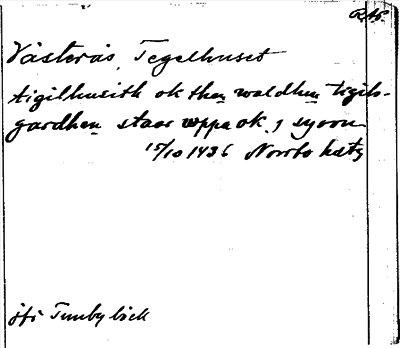 Västerås, Tegelhuset
tigilhusith ok then waldhen tigils-
gardhen staar uppa ok j syoon
15/10 1436 Norrbo hdtz
jfr Tunbybäck